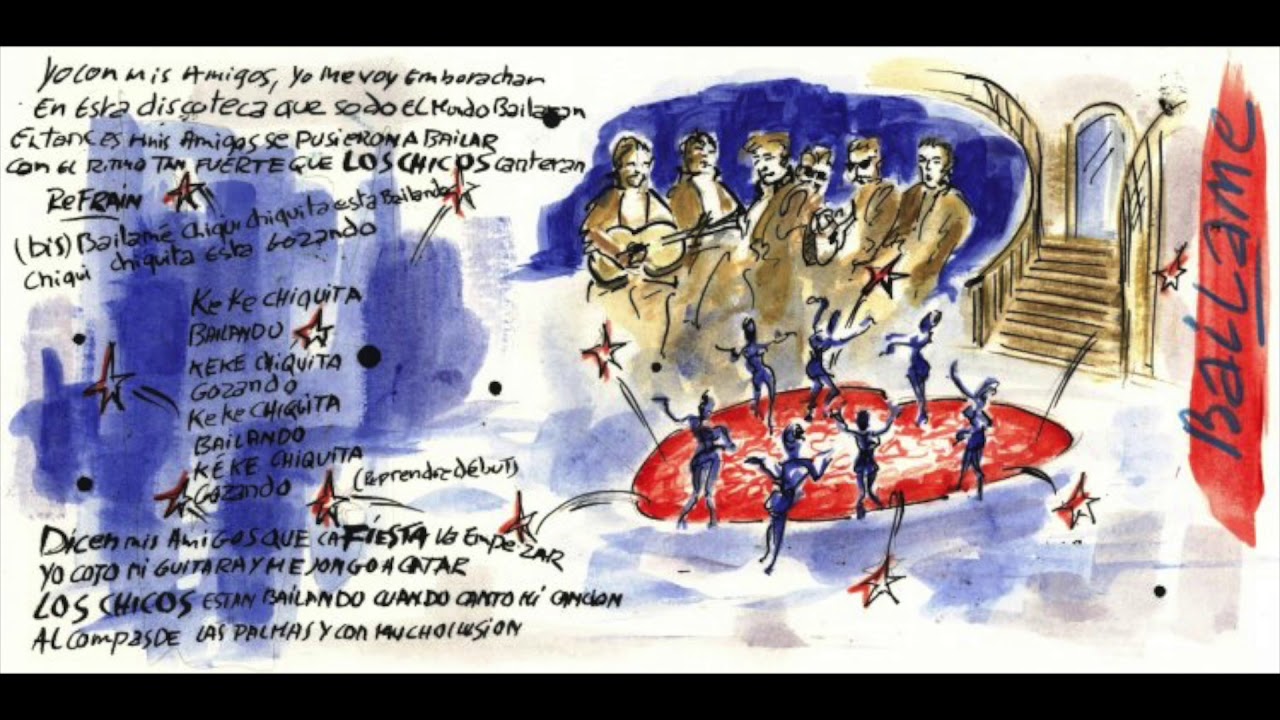 Yo con mis Amigos, yo me voy Emborachan
En Esta discoteca que sodo el Mundo Bailaran
Entonces Mis Amigos se PUSIERON A BAILAR
Con el RITMO TAN FUERTE QUE LOS CHICOS canteran
ReFRAIN
(bis) Bailamé Chiqui Chiquita esta Bailando
Chiqui chiquita Esta Gozando
Ke Ke CHIQUITA
BAILANDO
KEKE CHIQUITA
Gozando
KeKe CHIQUITA
BAILANDO
KÉKE CHIQUITA
Gozando
(Reprendre début)
Dicen mis AMIGOS QUE LA FIESTA Va EMPEZAR
YO COJO MI GUITARA Y ME JONGO A CATAR
LOS CHICOS ESTAN BAILANDO CUANDO CANTO MI CANCION
AL COMPAS DE LAS PALMAS Y CON MUCHO ILUSION
BAILAME